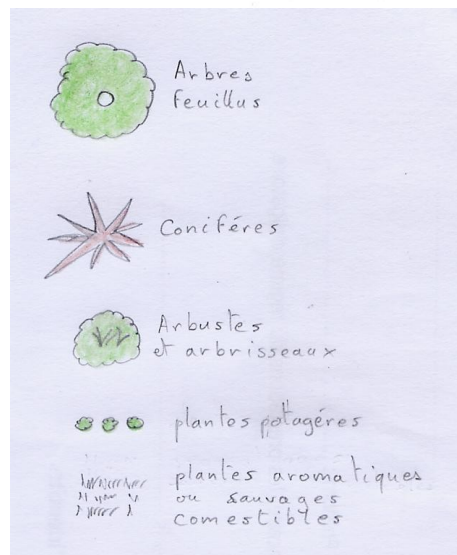 Arbres
feuillus
Coniféres
Arbustes
et arbrisseaux
plantes potagéres
plantes aromatiques
ou sauvages
comestibles